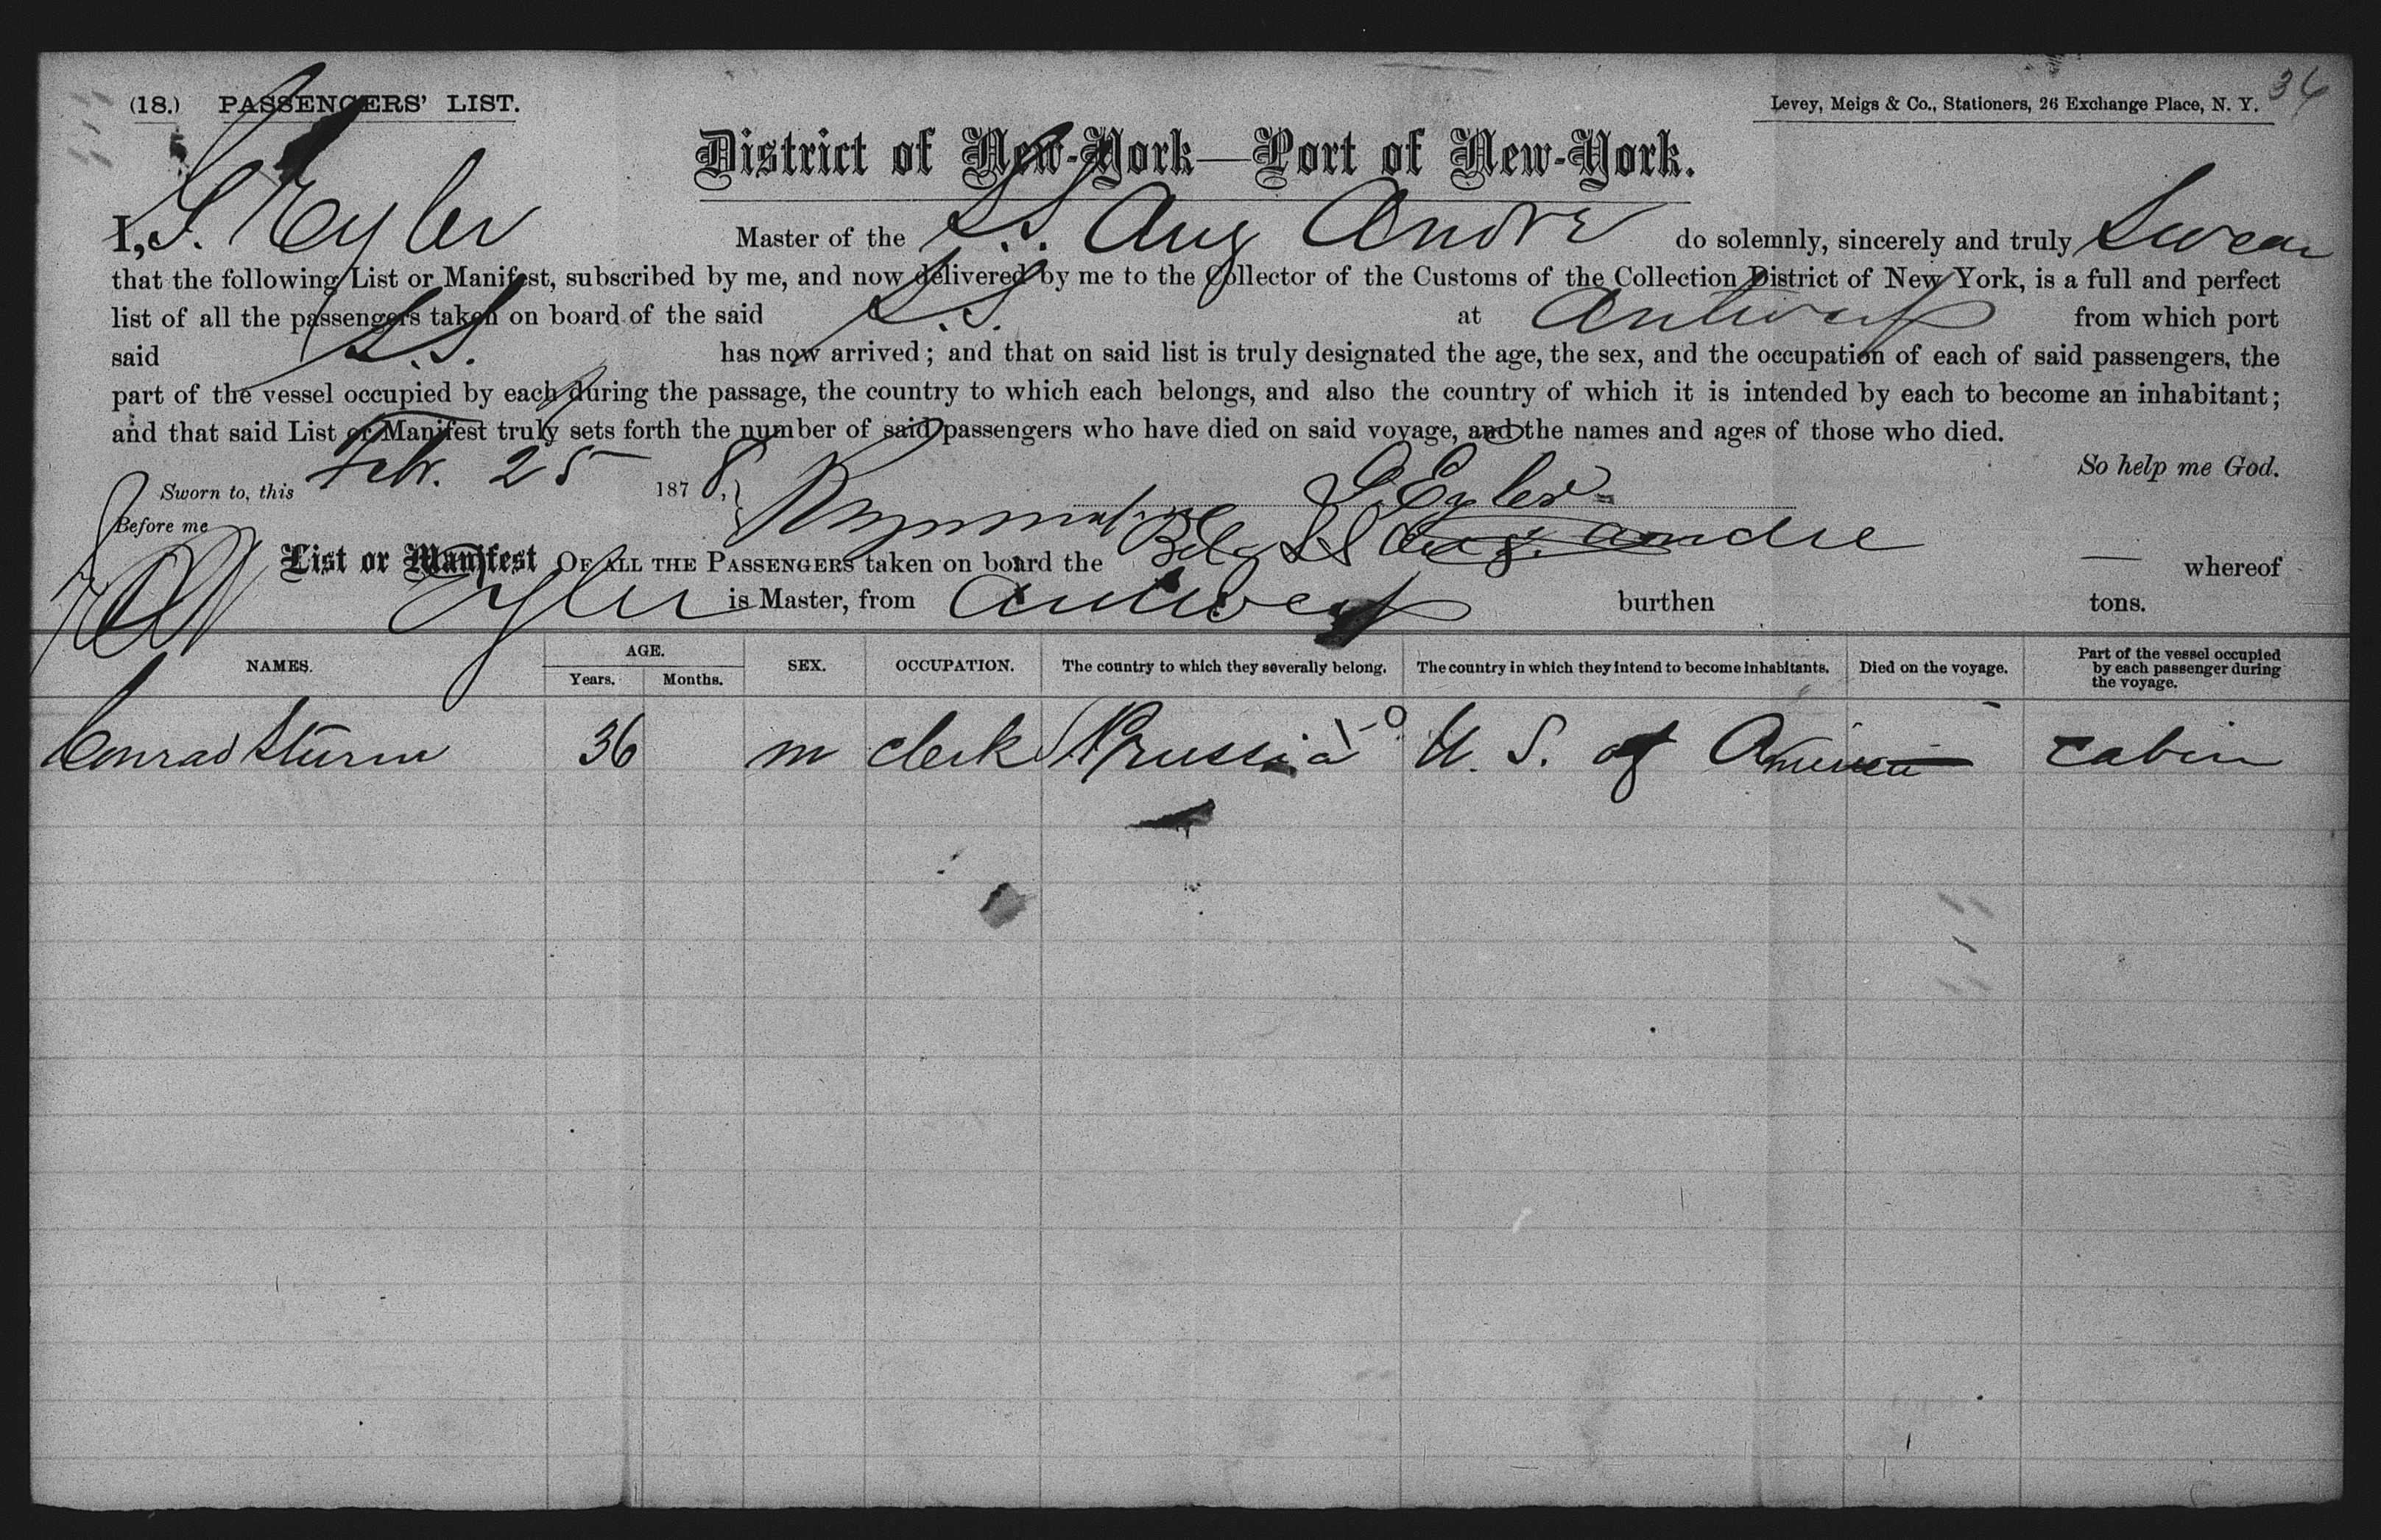 36
(18.) PASSENGERS' LIST.
Levey, Meigs & Co., Stationers, 26 Exchange Place, N. Y.
District of New-York—Port of New-York.
I, G. Eyler Master of the S.S. Aug André do solemnly, sincerely and truly Swear
that the following List or Manifest, subscribed by me, and now delivered by me to the Collector of the Customs of the Collection District of New York, is a full and perfect
list of all the passengers taken on board of the said S.S. at Antwerp from which port
said S.S. has now arrived; and that on said list is truly designated the age, the sex, and the occupation of each of said passengers, the
part of the vessel occupied by each during the passage, the country to which each belongs, and also the country of which it is intended by each to become an inhabitant;
and that said List or Manifest truly sets forth the number of said passengers who have died on said voyage, and the names and ages of those who died.
So help me God.
Sworn to, this Febr. 25 1878, G. Eyler
Before me
List or Manifest OF ALL THE PASSENGERS taken on board the Belg SS Aug. andre — whereof
Eyler is Master, from Antwerp burthen tons.
NAMES. AGE. Years. Months. SEX. OCCUPATION. The country to which they severally belong. The country in which they intend to become inhabitants. Died on the voyage. Part of the vessel occupied by each passenger during the voyage.
Conrad Sturm 36 m clerk Prussia U. S. of America cabin